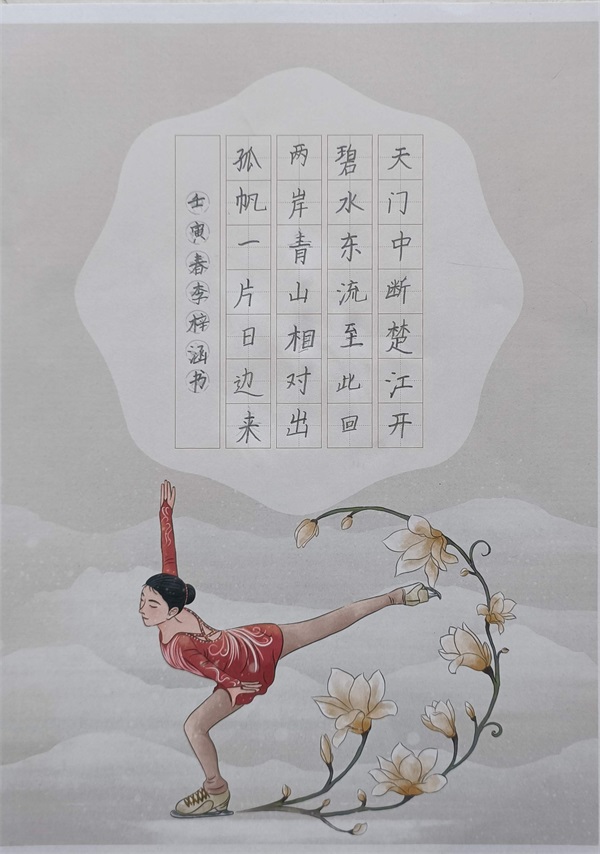 天门中断楚江开
碧水东流至此回
两岸青山相对出
孤帆一片日边来
壬寅春李梓涵书